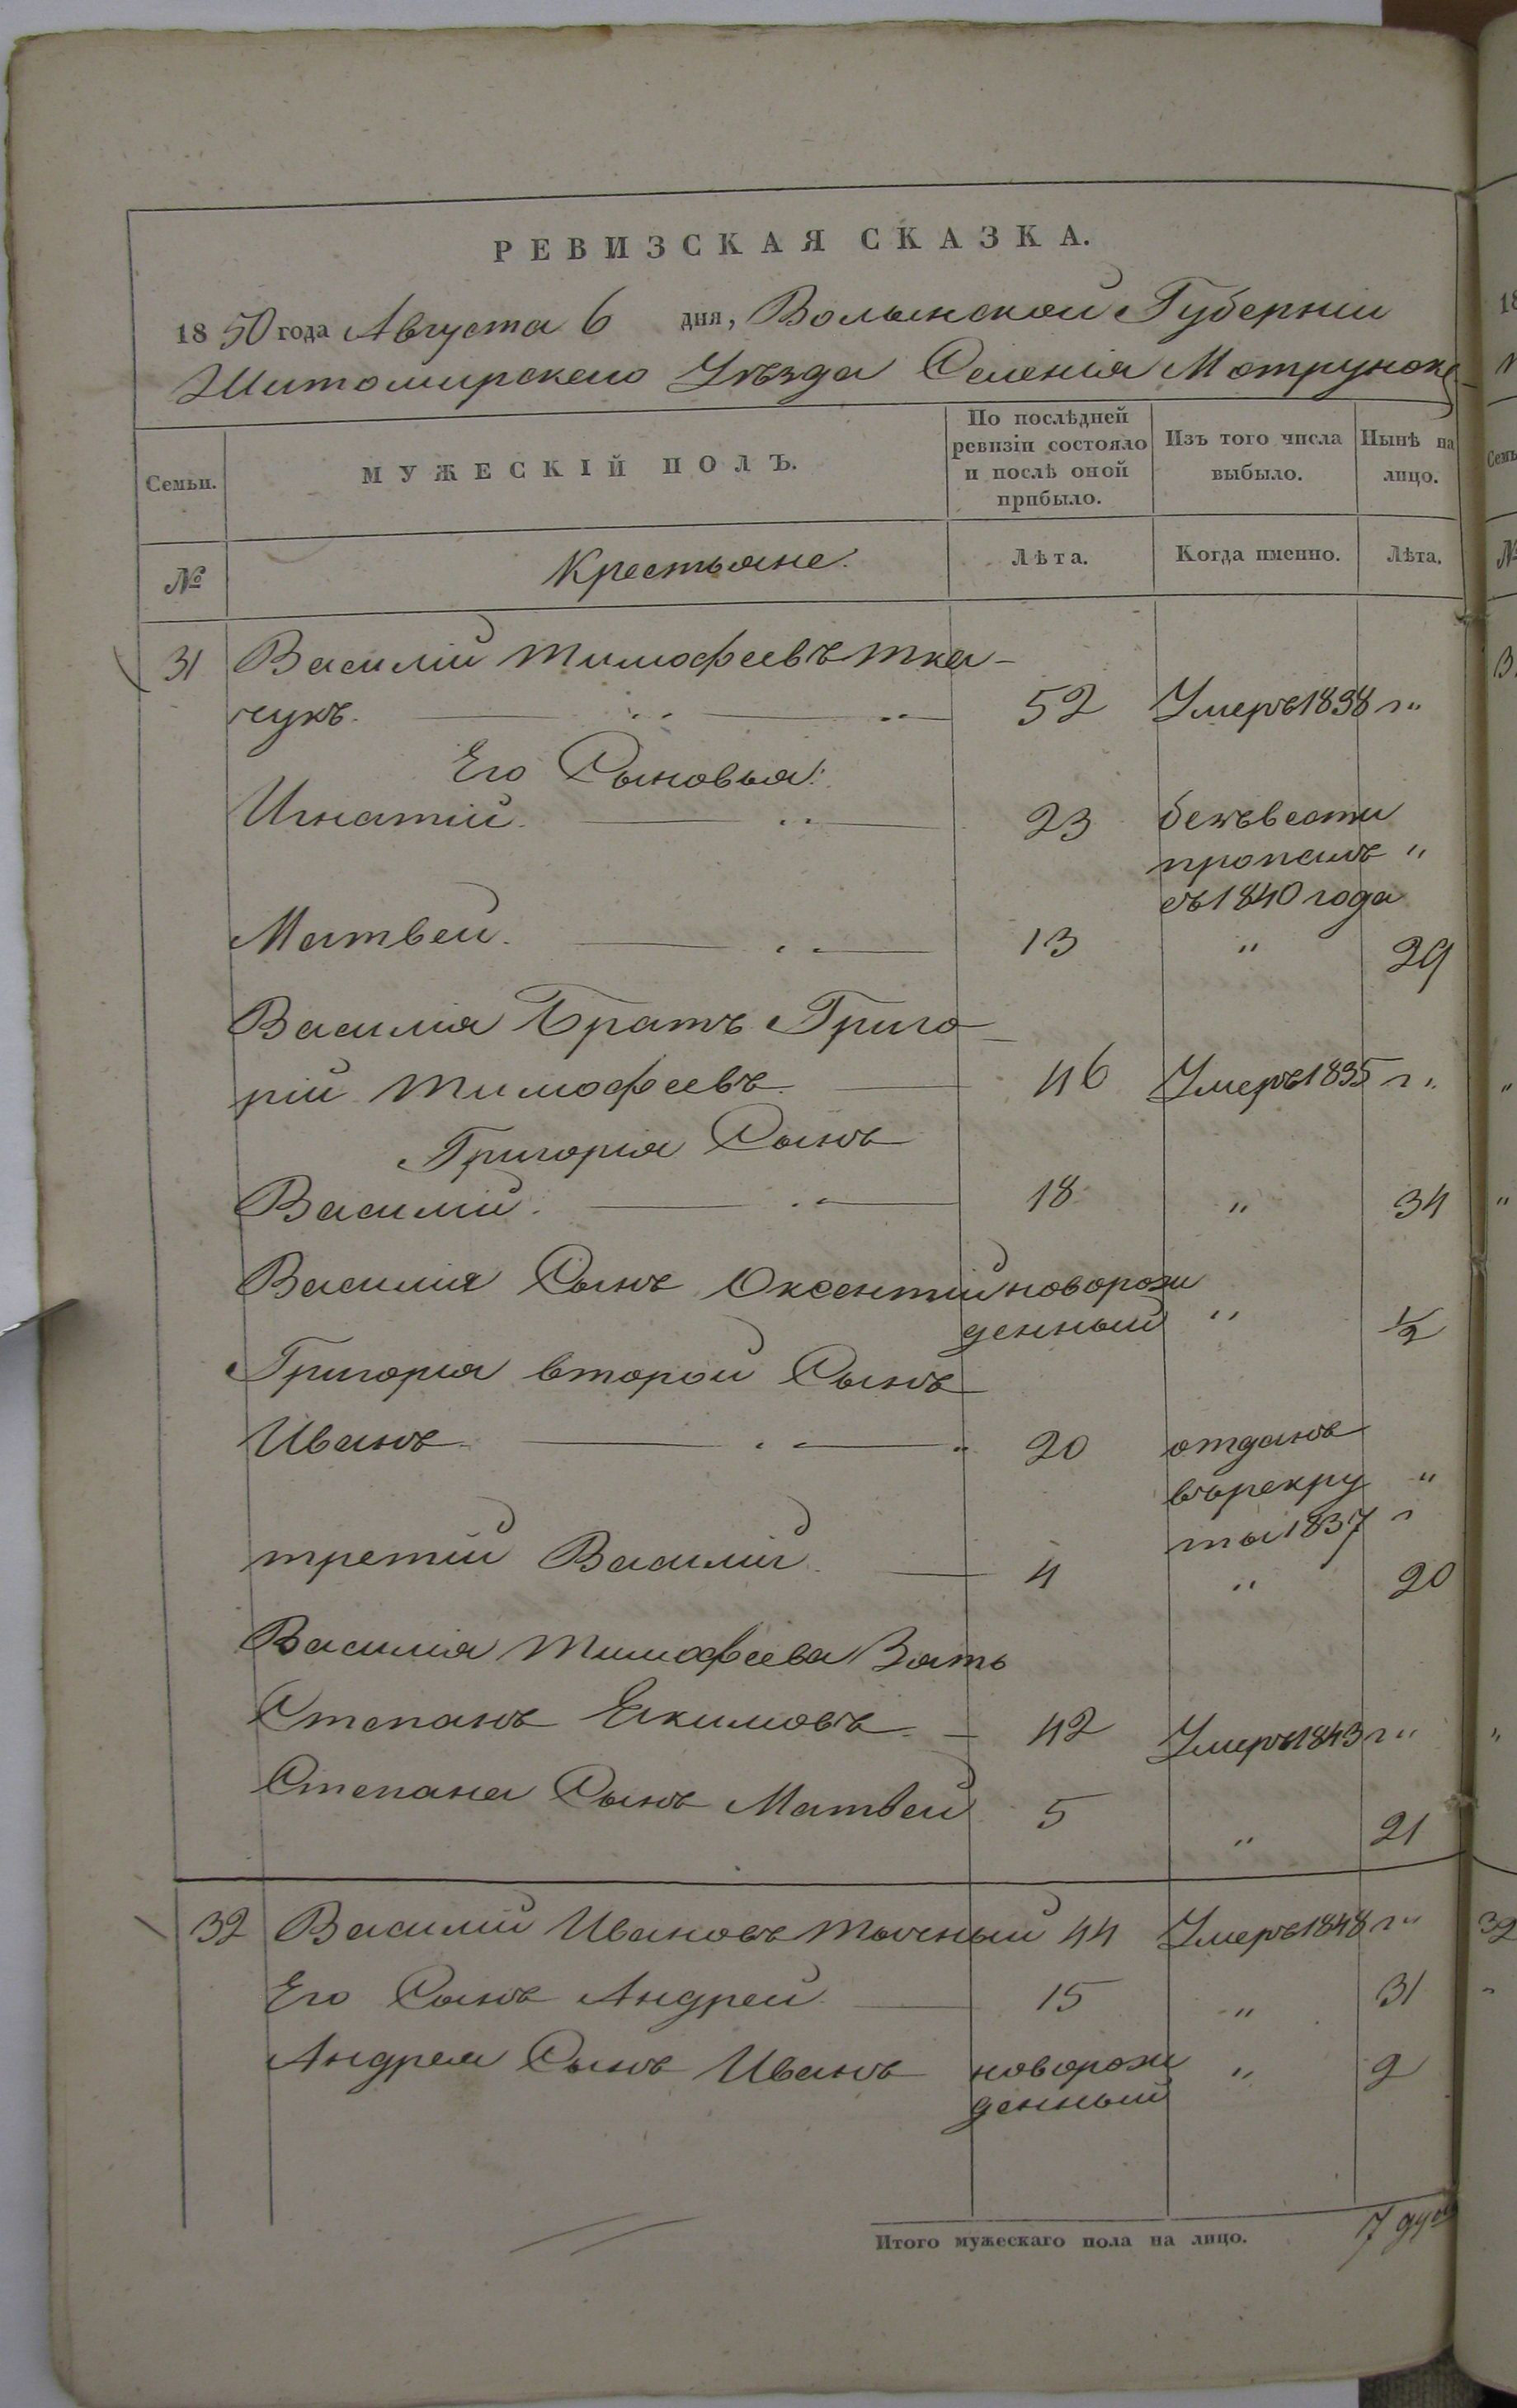 РЕВИЗСКАЯ СКАЗКА.
1850 года Августа 6 дня, Волынской Губерніи
Житомирского Уѣзда Селенія Мотрунокъ
Семьи. МУЖЕСКІЙ ПОЛЪ. По послѣдней ревизіи состояло и послѣ оной прибыло. Изъ того числа выбыло. Нынѣ на лицо.
№ Крестьяне. Лѣта. Когда именно. Лѣта.
31 Василій Тимофеевъ Тка-
чукъ. 52 Умеръ 1838 г "
Его Сыновья:
Игнатій. 23 безъвести
пропалъ "
съ 1840 года
Матвей. 13 " 29
Василія Братъ Григо-
рій Тимофеевъ 46 Умеръ 1835 г "
Григорія Сынъ
Василій. 18 " 34
Василія Сынъ Оксентій новорож
денный " 1/2
Григорія второй Сынъ
Иванъ 20 отданъ
въ рекру "
ты 1837 г
третій Василій 4 " 20
Василія Тимофеева Зять
Степанъ Екимовъ 42 Умеръ 1843 г "
Степана Сынъ Матвей 5 " 21
32 Василій Ивановъ Тычный 44 Умеръ 1848 г "
Его Сынъ Андрей 15 " 31
Андрея Сынъ Иванъ новорож " 2
денный
Итого мужескаго пола на лицо. 7 душ